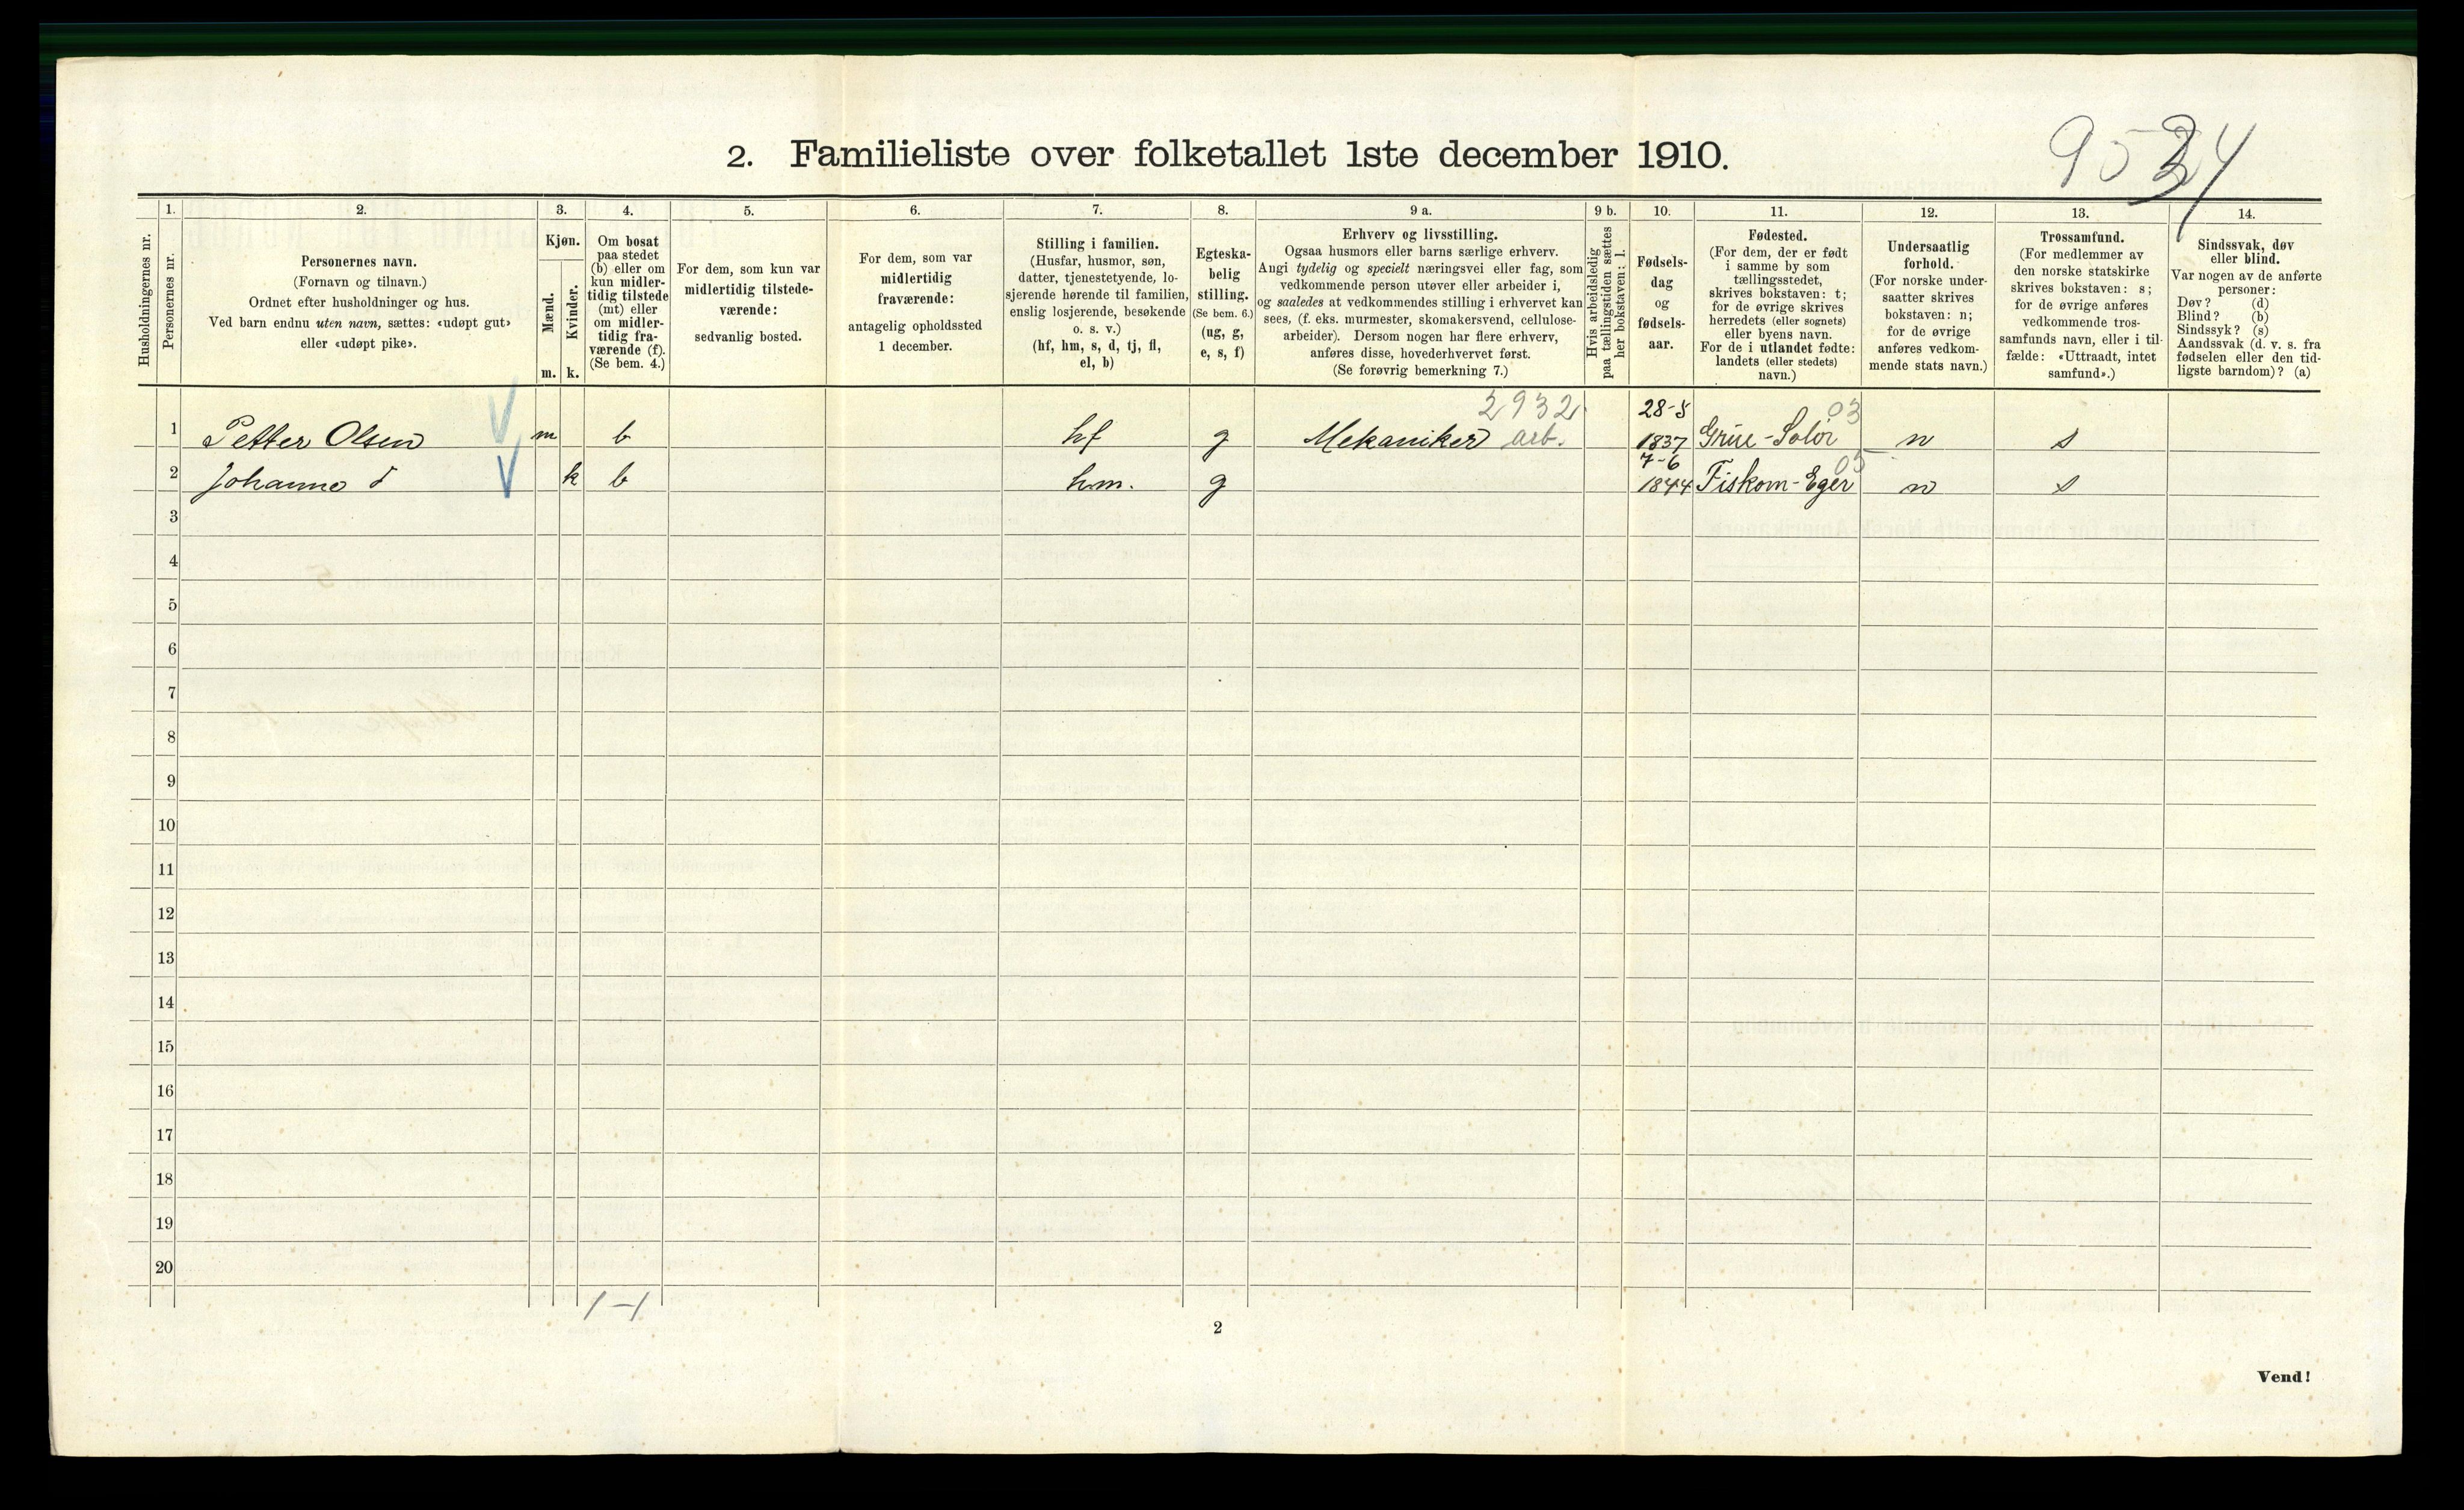 2. Familieliste over folketallet 1ste december 1910.
1. 2. 3. 4. 5. 6. 7. 8. 9 a. 9 b. 10. 11. 12. 13. 14.
Husholdningernes nr.
Personernes nr.
Personernes navn.
(Fornavn og tilnavn.)
Ordnet efter husholdninger og hus.
Ved barn endnu uten navn, sættes: «udøpt gut»
eller «udøpt pike».
Kjøn.
Mænd.
m.
Kvinder.
k.
Om bosat
paa stedet
(b) eller om
kun midler-
tidig tilstede
(mt) eller
om midler-
tidig fra-
værende (f).
(Se bem. 4.)
For dem, som kun var
midlertidig tilstede-
værende:
sedvanlig bosted.
For dem, som var
midlertidig
fraværende:
antagelig opholdssted
1 december.
Stilling i familien.
(Husfar, husmor, søn,
datter, tjenestetyende, lo-
sjerende hørende til familien,
enslig losjerende, besøkende
o. s. v.)
(hf, hm, s, d, tj, fl,
el, b)
Egteska-
belig
stilling.
(Se bem. 6.)
(ug, g,
e, s, f)
Erhverv og livsstilling.
Ogsaa husmors eller barns særlige erhverv.
Angi tydelig og specielt næringsvei eller fag, som
vedkommende person utøver eller arbeider i,
og saaledes at vedkommendes stilling i erhvervet kan
sees, (f. eks. murmester, skomakersvend, cellulose-
arbeider). Dersom nogen har flere erhverv,
anføres disse, hovederhvervet først.
(Se forøvrig bemerkning 7.)
Hvis arbeidsledig
paa tællingstiden sættes
her bokstaven: l.
Fødsels-
dag
og
fødsels-
aar.
Fødested.
(For dem, der er født
i samme by som
tællingsstedet,
skrives bokstaven: t;
for de øvrige skrives
herredets (eller sognets)
eller byens navn.
For de i utlandet fødte:
landets (eller stedets)
navn.)
Undersaatlig
forhold.
(For norske under-
saatter skrives
bokstaven: n;
for de øvrige
anføres vedkom-
mende stats navn.)
Trossamfund.
(For medlemmer av
den norske statskirke
skrives bokstaven: s;
for de øvrige anføres
vedkommende tros-
samfunds navn, eller i til-
fælde: «Uttraadt, intet
samfund».)
Sindssvak, døv
eller blind.
Var nogen av de anførte
personer:
Døv? (d)
Blind? (b)
Sindssyk? (s)
Aandssvak (d. v. s. fra
fødselen eller den tid-
ligste barndom)? (a)
2932 28-5 03
1 Petter Olsen m b hf g Mekaniker arb. 1837 Grue-Solør n s
7-6 05
2 Johanne d k b hm. g 1844 Fiskom-Eger n s
3
4
5
6
7
8
9
10
11
12
13
14
15
16
17
18
19
20
1-1
2
Vend!